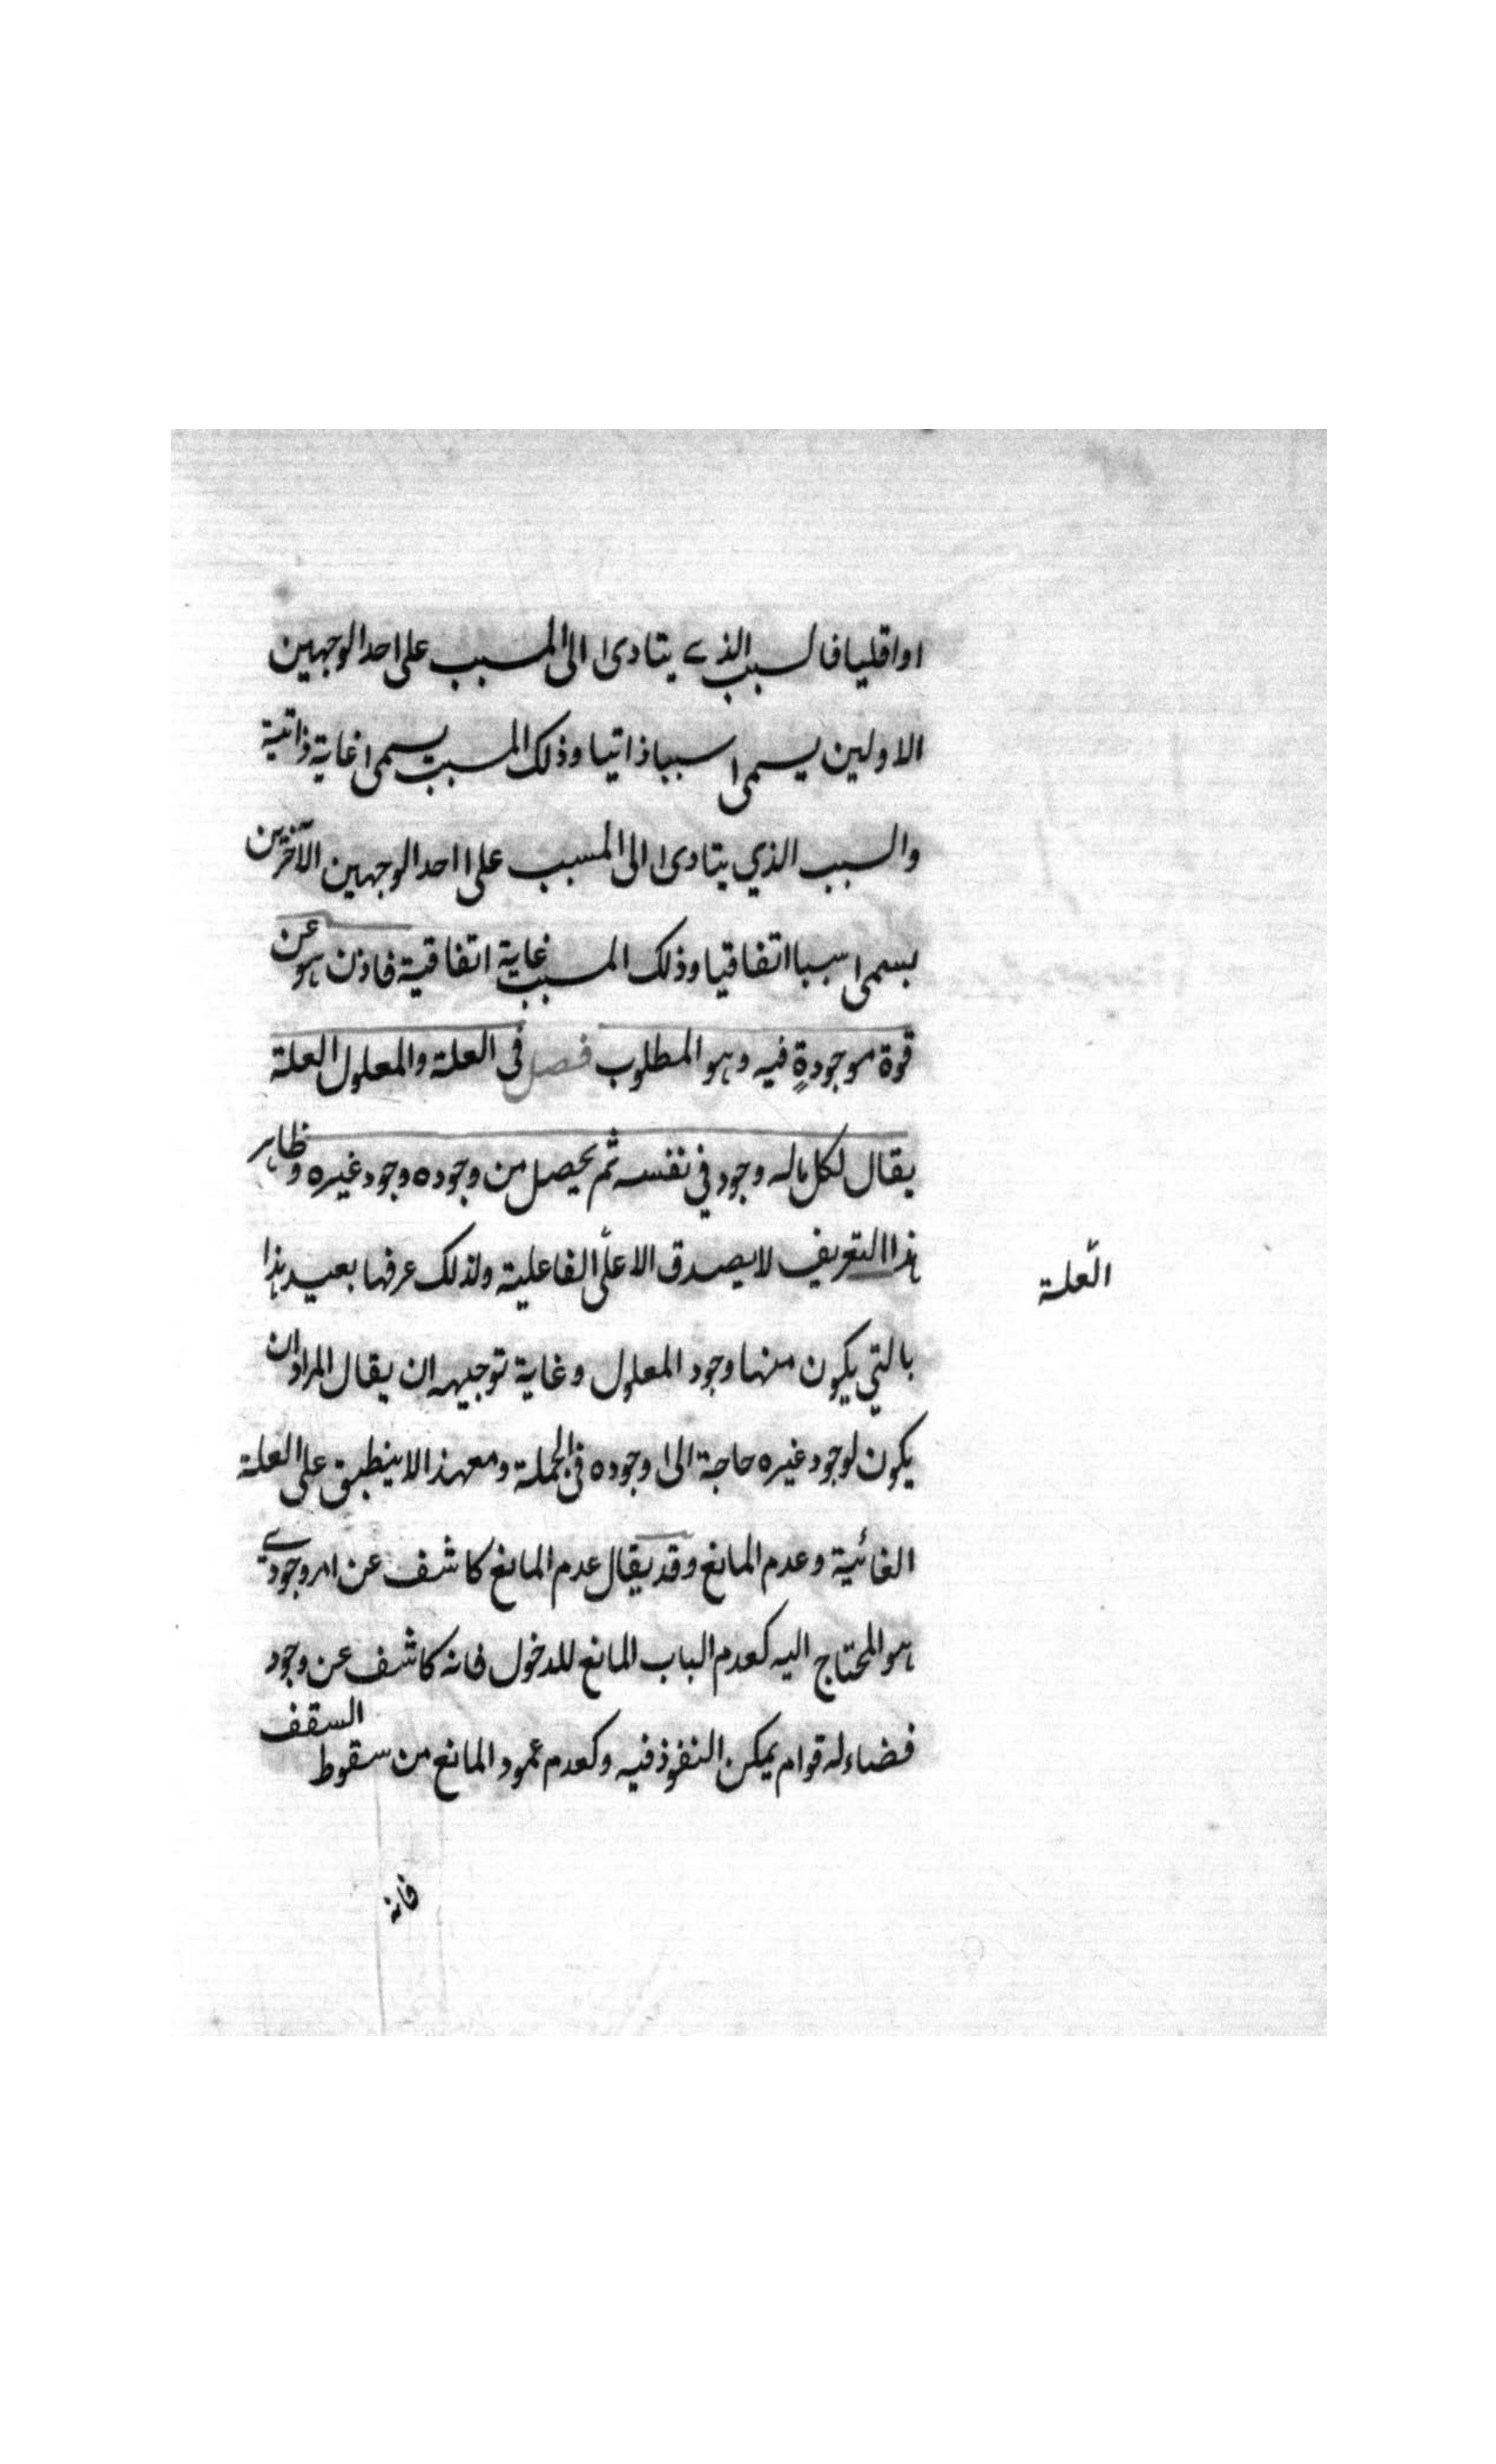 او اقليا فالسبب الذي يتادى الى المسبب على احد الوجهين
الاولين يسمى سببا ذاتيا وذلك المسبب يسمى غاية ذاتية
والسبب الذي يتادى الى المسبب على احد الوجهين الآخرين
يسمى سببا اتفاقيا وذلك المسبب غاية اتفاقية فاذن هو عن
قوة موجودة فيه وهو المطلوب فصل في العلة والمعلول العلة
يقال لكل ماله وجود في نفسه ثم يحصل من وجوده وجود غيره وظاهر
هذا التعريف لا يصدق الا على الفاعلية ولذلك عرفها بعيد هذا
العلة
بالتي يكون منها وجود المعلول وغاية توجيهه ان يقال المراد ان
يكون لوجود غيره حاجة الى وجوده في الجملة ومع هذا لا ينطبق على العلة
الغائية وعدم المانع وقد يقال عدم المانع كاشف عن امر وجودي
هو المحتاج اليه كعدم الباب المانع للدخول فانه كاشف عن وجود
فضاء له قوام يمكن النفوذ فيه وكعدم عمود المانع من سقوط السقف
فانه